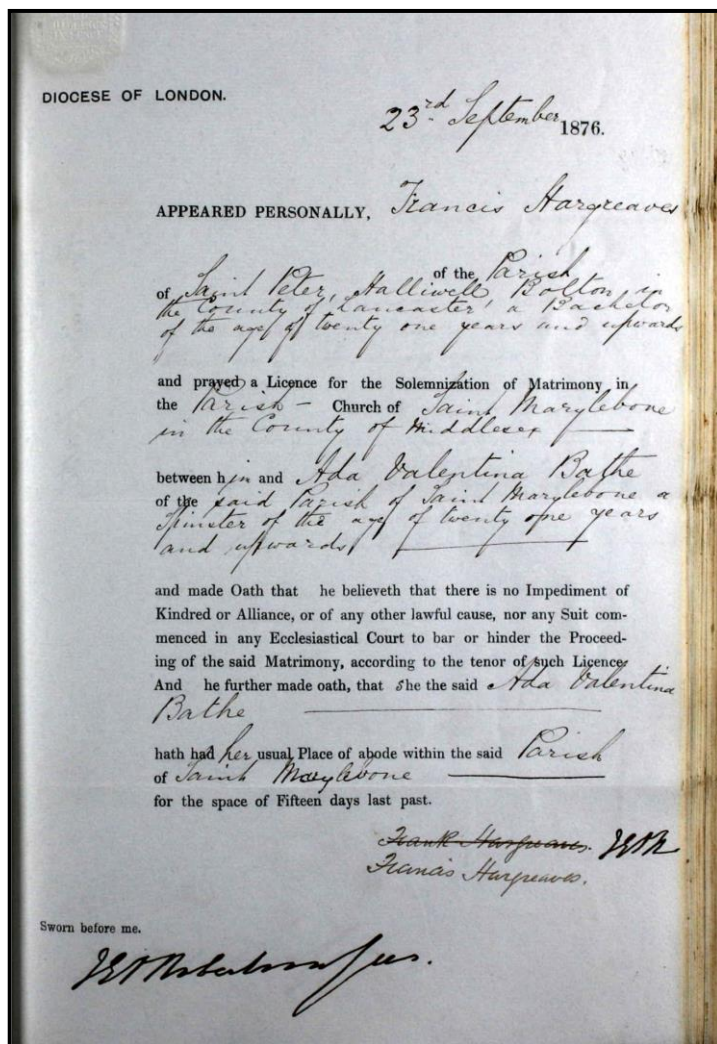 DIOCESE OF LONDON.
23rd September 1876.
APPEARED PERSONALLY, Francis Hargreaves
of the Parish
of Saint Peter, Halliwell Bolton in
the County of Lancaster, a Bachelor
of the age of twenty one years and upwards
and prayed a Licence for the Solemnization of Matrimony in
the Parish – Church of Saint Marylebone
in the County of Middlesex
between him and Ada Valentina Bathe
of the said Parish of Saint Marylebone a
Spinster of the age of twenty one years
and upwards
and made Oath that he believeth that there is no Impediment of
Kindred or Alliance, or of any other lawful cause, nor any Suit com-
menced in any Ecclesiastical Court to bar or hinder the Proceed-
ing of the said Matrimony, according to the tenor of such Licence
And he further made oath, that she the said Ada Valentina
Bathe
hath had her usual Place of abode within the said Parish
of Saint Marylebone
for the space of Fifteen days last past.
Frank Hargreaves.
Francis Hargreaves.
Sworn before me.